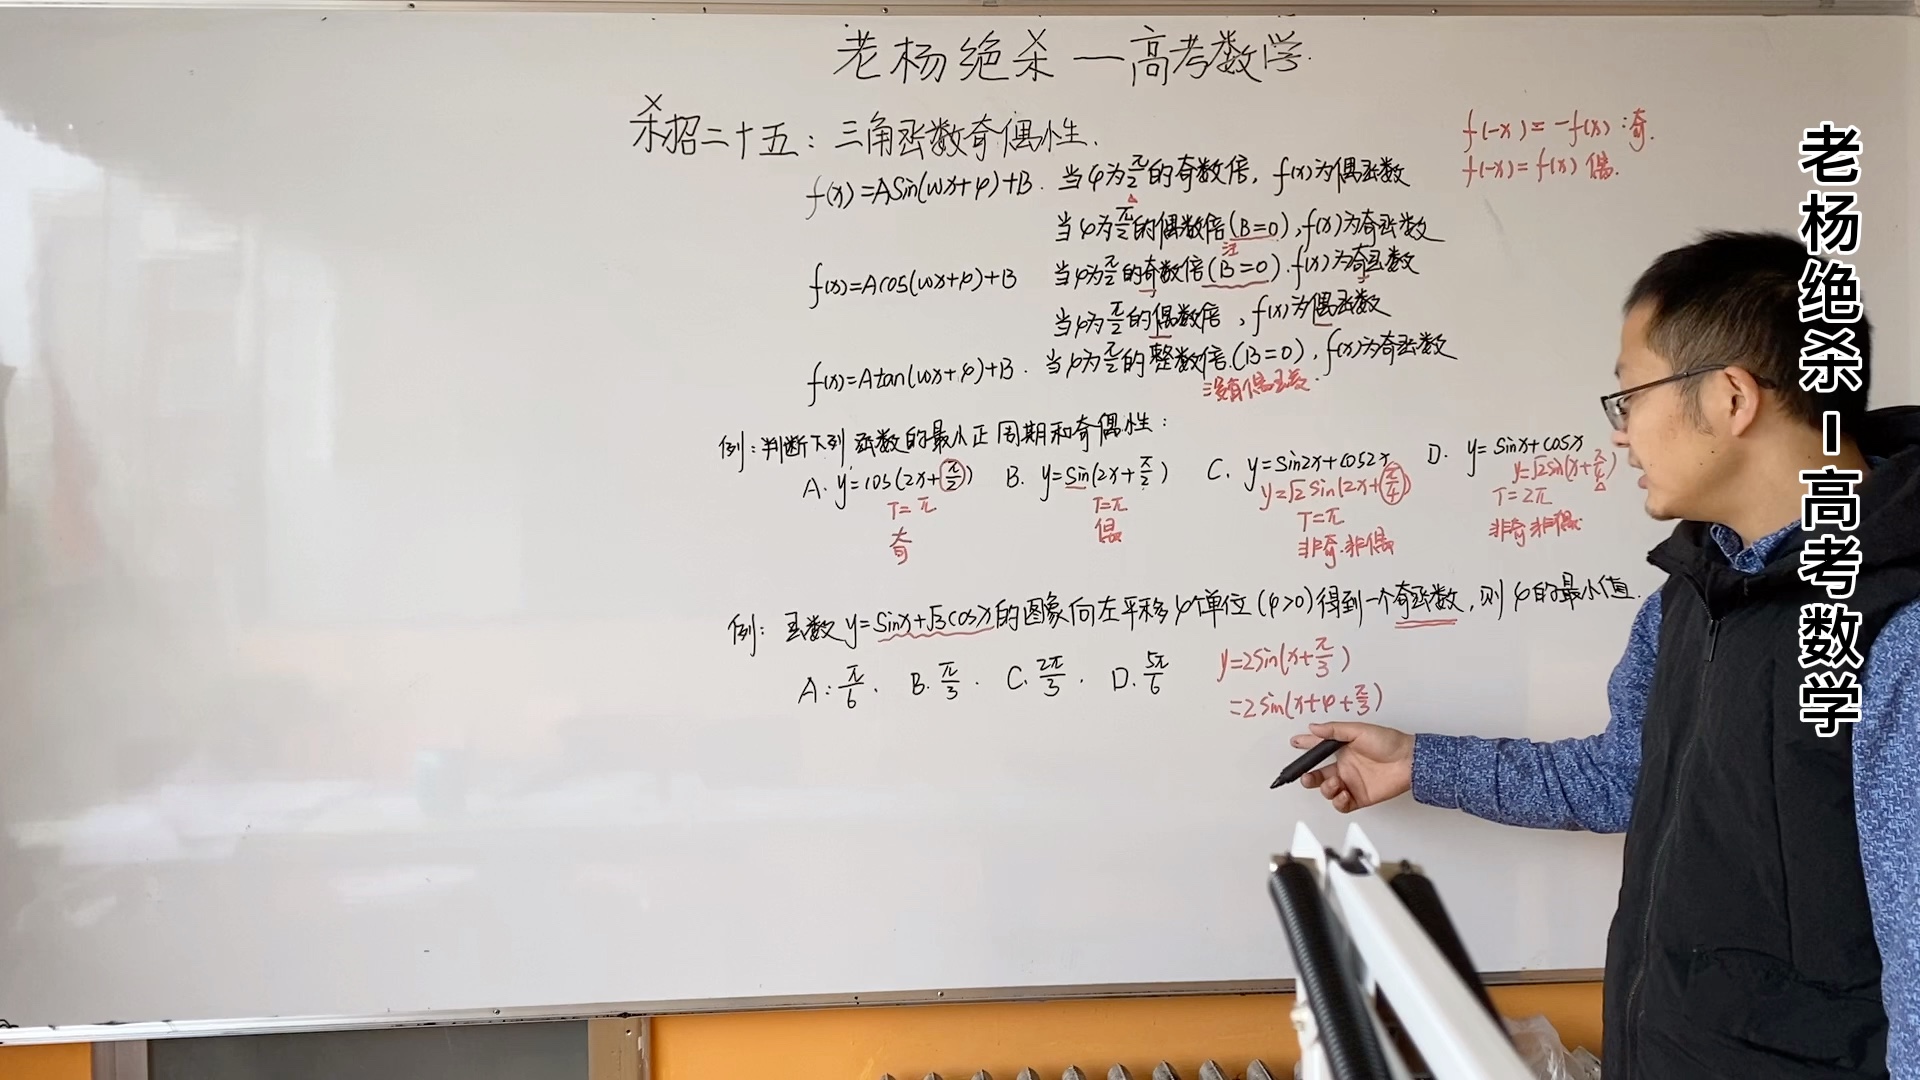 老杨绝杀一高考数学.
杀招二十五：三角函数奇偶性.
f(-x)=-f(x):奇.
f(-x)=f(x) 偶.
f(x)=ASin(wx+φ)+B. 当φ为π/2的奇数倍, f(x)为偶函数
当φ为π/2的偶数倍(B=0),f(x)为奇函数
注
f(x)=Acos(wx+φ)+B 当φ为π/2的奇数倍(B=0).f(x)为奇函数
当φ为π/2的偶数倍,f(x)为偶函数
f(x)=Atan(wx+φ)+B. 当φ为π/2的整数倍.(B=0),f(x)为奇函数
没有偶函数.
例:判断下列函数的最小正周期和奇偶性:
A. y=cos(2x+π/2) B. y=Sin(2x+π/2) C. y=Sin2x+cos2x D. y=Sinx+cosx
y=√2Sin(2x+π/4) y=√2Sin(x+π/4)
T=π T=π T=π T=2π
奇 偶 非奇.非偶 非奇非偶
例: 函数y=Sinx+√3cosx的图象向左平移φ个单位(φ>0)得到一个奇函数,则φ的最小值.
A:π/6. B.π/3. C.2π/3. D.5π/6
y=2Sin(x+π/3)
=2Sin(x+φ+π/3)
老杨绝杀-高考数学